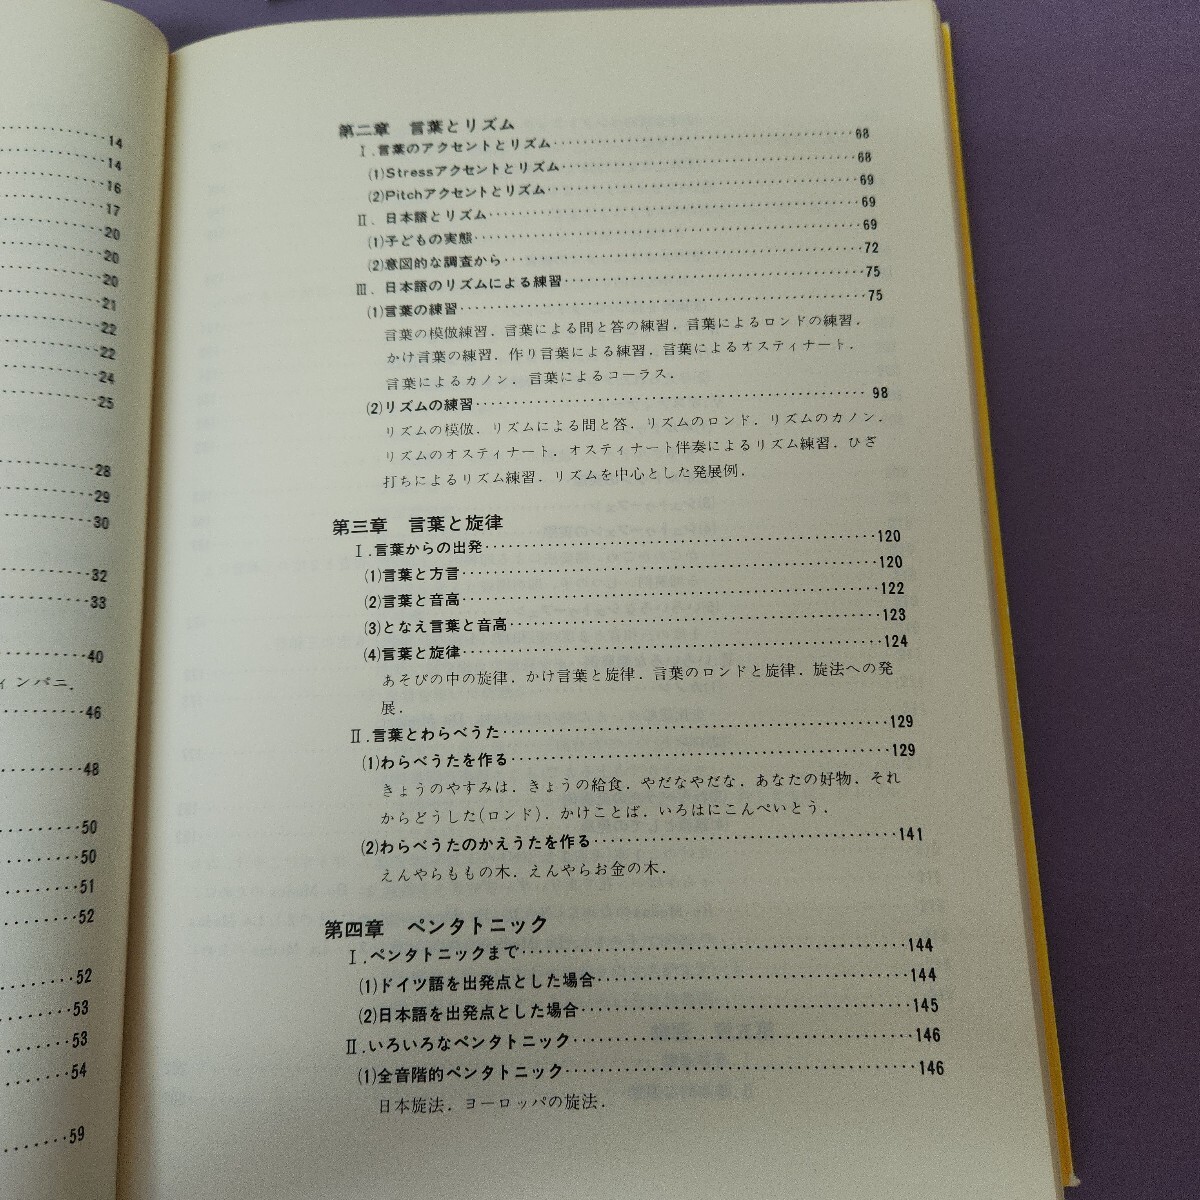 14
14
16
17
20
20
20
21
22
22
24
25
28
29
30
32
33
40
ィンパニ．
46
48
50
50
51
52
52
53
53
54
59
第二章　言葉とリズム
Ⅰ．言葉のアクセントとリズム……68
(1)Stressアクセントとリズム……68
(2)Pitchアクセントとリズム……69
Ⅱ．日本語とリズム……69
(1)子どもの実態……69
(2)意図的な調査から……72
Ⅲ．日本語のリズムによる練習……75
(1)言葉の練習……75
言葉の模倣練習．言葉による問と答の練習．言葉によるロンドの練習．
かけ言葉の練習．作り言葉による練習．言葉によるオスティナート．
言葉によるカノン．言葉によるコーラス．
(2)リズムの練習……98
リズムの模倣．リズムによる問と答．リズムのロンド．リズムのカノン．
リズムのオスティナート．オスティナート伴奏によるリズム練習．ひざ
打ちによるリズム練習．リズムを中心とした発展例．
第三章　言葉と旋律
Ⅰ．言葉からの出発……120
(1)言葉と方言……120
(2)言葉と音高……122
(3)となえ言葉と音高……123
(4)言葉と旋律……124
あそびの中の旋律．かけ言葉と旋律．言葉のロンドと旋律．旋法への発
展．
Ⅱ．言葉とわらべうた……129
(1)わらべうたを作る……129
きょうのやすみは．きょうの給食．やだなやだな．あなたの好物．それ
からどうした(ロンド)．かけことば．いろはにこんぺいとう．
(2)わらべうたのかえうたを作る……141
えんやらももの木．えんやらお金の木．
第四章　ペンタトニック
Ⅰ．ペンタトニックまで……144
(1)ドイツ語を出発点とした場合……144
(2)日本語を出発点とした場合……145
Ⅱ．いろいろなペンタトニック……146
(1)全音階的ペンタトニック……146
日本旋法．ヨーロッパの旋法．